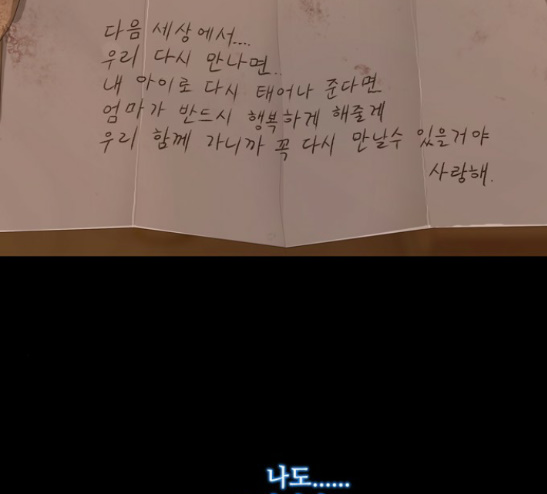 다음 세상에서....
우리 다시 만나면..
내 아이로 다시 태어나 준다면
엄마가 반드시 행복하게 해줄게
우리 함께 가니까 꼭 다시 만날수 있을거야
사랑해.
나도......